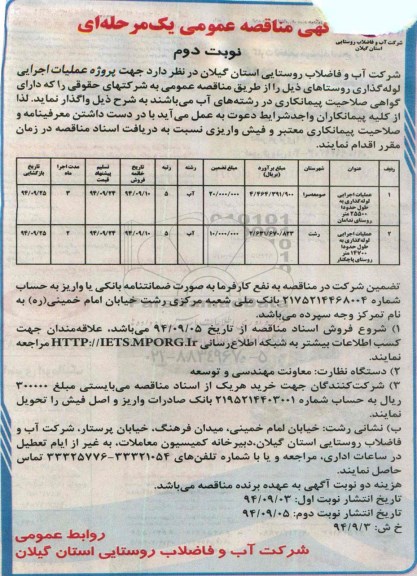 آگهی مناقصه عمومی یک‌مرحله‌ای
شرکت آب و فاضلاب روستایی
استان گیلان
نوبت دوم
شرکت آب و فاضلاب روستایی استان گیلان در نظر دارد جهت پروژه عملیات اجرایی
لوله‌گذاری روستاهای ذیل را از طریق مناقصه عمومی به شرکتهای حقوقی را که دارای
گواهی صلاحیت پیمانکاری در رشته‌های آب می‌باشند به شرح ذیل واگذار نماید. لذا
از کلیه پیمانکاران واجدشرایط دعوت به عمل می‌آید با در دست داشتن معرفینامه و
صلاحیت پیمانکاری معتبر و فیش واریزی نسبت به دریافت اسناد مناقصه در زمان
مقرر اقدام نمایند.
ردیف عنوان شهرستان مبلغ برآورد (ریال) مبلغ تضمین رشته رتبه تاریخ خاتمه فروش تسلیم پیشنهاد قیمت مدت اجرا ماه تاریخ بازگشایی
۱ عملیات اجرایی لوله‌گذاری به طول حدوداً ۲۵۵۰۰ متر روستای صومعه‌سرا ۴/۴۶۴/۳۹۱/۹۰۰ ۲۰/۰۰۰/۰۰۰ آب ۵ ۹۴/۰۹/۱۰ ۹۴/۰۹/۲۴ ۳ ۹۴/۰۹/۲۵
۲ عملیات اجرایی لوله‌گذاری به طول حدوداً ۱۴۷۰۰ متر روستای پاچکنار رشت ۱۰/۰۰۰/۰۰۰ آب ۵ ۹۴/۰۹/۱۰ ۹۴/۰۹/۲۴ ۲ ۹۴/۰۹/۲۵
تضمین شرکت در مناقصه به نفع کارفرما به صورت ضمانتنامه بانکی یا واریز به حساب
شماره ۲۱۷۵۲۱۴۴۶۸۰۰۴ بانک ملی شعبه مرکزی رشت خیابان امام خمینی(ره) به
نام تمرکز وجه سپرده می‌باشد.
۱) شروع فروش اسناد مناقصه از تاریخ ۹۴/۰۹/۰۵ می‌باشد، علاقه‌مندان جهت
کسب اطلاعات بیشتر به شبکه اطلاع‌رسانی HTTP://IETS.MPORG.Ir مراجعه
نمایند.
۲) دستگاه نظارت: معاونت مهندسی و توسعه
۳) شرکت‌کنندگان جهت خرید هریک از اسناد مناقصه می‌بایستی مبلغ ۳۰۰۰۰۰
ریال به حساب شماره ۲۱۹۵۲۱۴۴۰۳۰۰۱ بانک صادرات واریز و اصل فیش را تحویل
نمایند.
ب) نشانی رشت: خیابان امام خمینی، میدان فرهنگ، خیابان پرستار، شرکت آب و
فاضلاب روستایی استان گیلان،دبیرخانه کمیسیون معاملات، به غیر از ایام تعطیل
در ساعات اداری، مراجعه و یا با شماره تلفن‌های ۳۳۳۲۱۰۵۴-۳۳۳۲۵۷۷۶ تماس
حاصل نمایند.
هزینه دو نوبت آگهی به عهده برنده مناقصه می‌باشد.
تاریخ انتشار نوبت اول: ۹۴/۰۹/۰۳
تاریخ انتشار نوبت دوم: ۹۴/۰۹/۰۵
خ ش: ۹۴/۹/۳
روابط عمومی
شرکت آب و فاضلاب روستایی استان گیلان